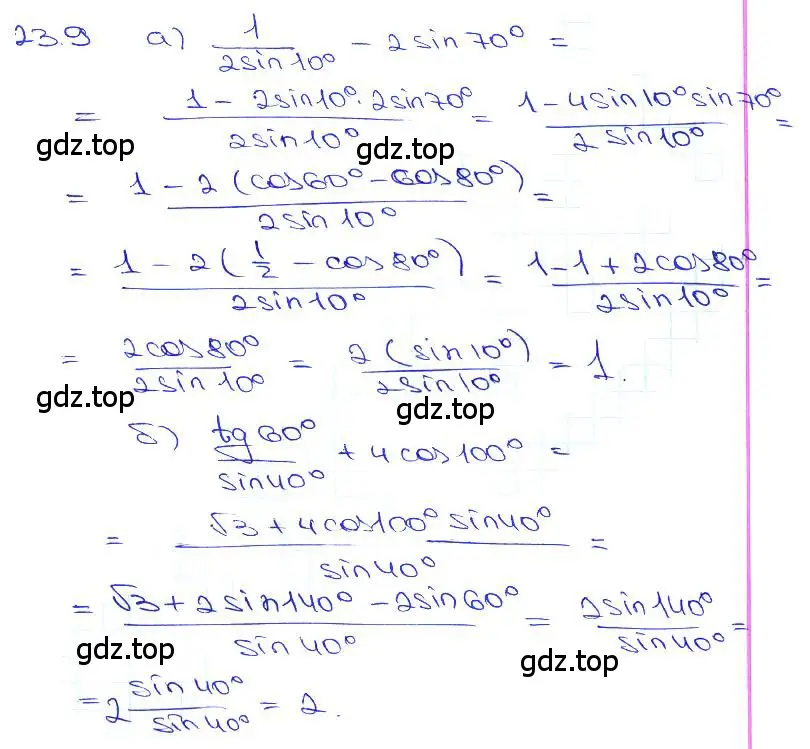 23.9 а) 1/(2sin10°) - 2sin70° =
= (1 - 2sin10°·2sin70°)/(2sin10°) = (1-4sin10°sin70°)/(2sin10°) =
gdz.top gdz.top
= (1-2(cos60°-cos80°))/(2sin10°) =
= (1-2(1/2-cos80°))/(2sin10°) = (1-1+2cos80°)/(2sin10°) =
= 2cos80°/(2sin10°) = 2(sin10°)/(2sin10°) = 1.
gdz.top gdz.top
б) tg60°/sin40° + 4cos100° =
= (√3+4cos100°sin40°)/sin40° =
= (√3+2sin140°-2sin60°)/sin40° = 2sin140°/sin40° =
gdz.top gdz.top
=2 sin40°/sin40° = 2.